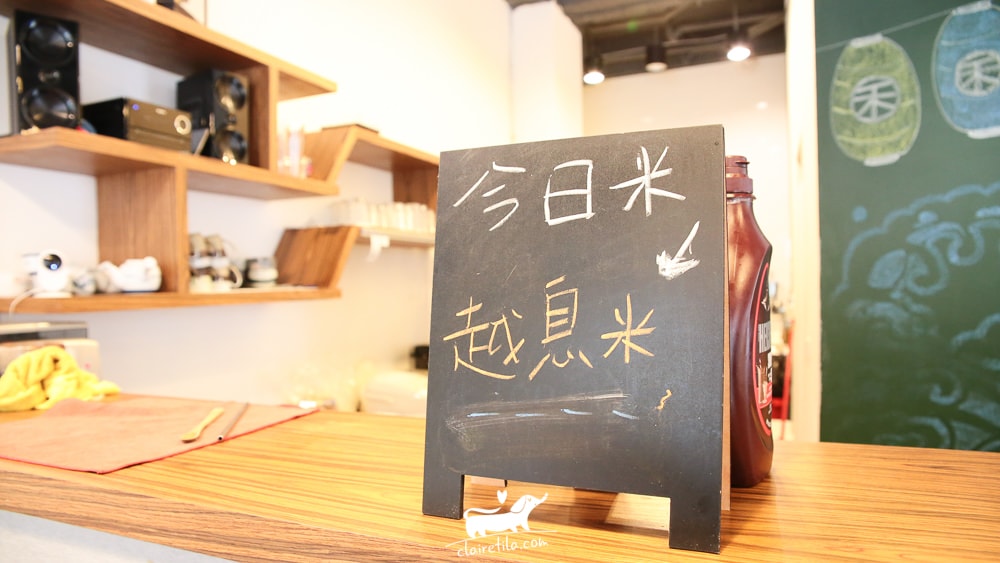 今日米
越息米
禾
禾
clairetila.com